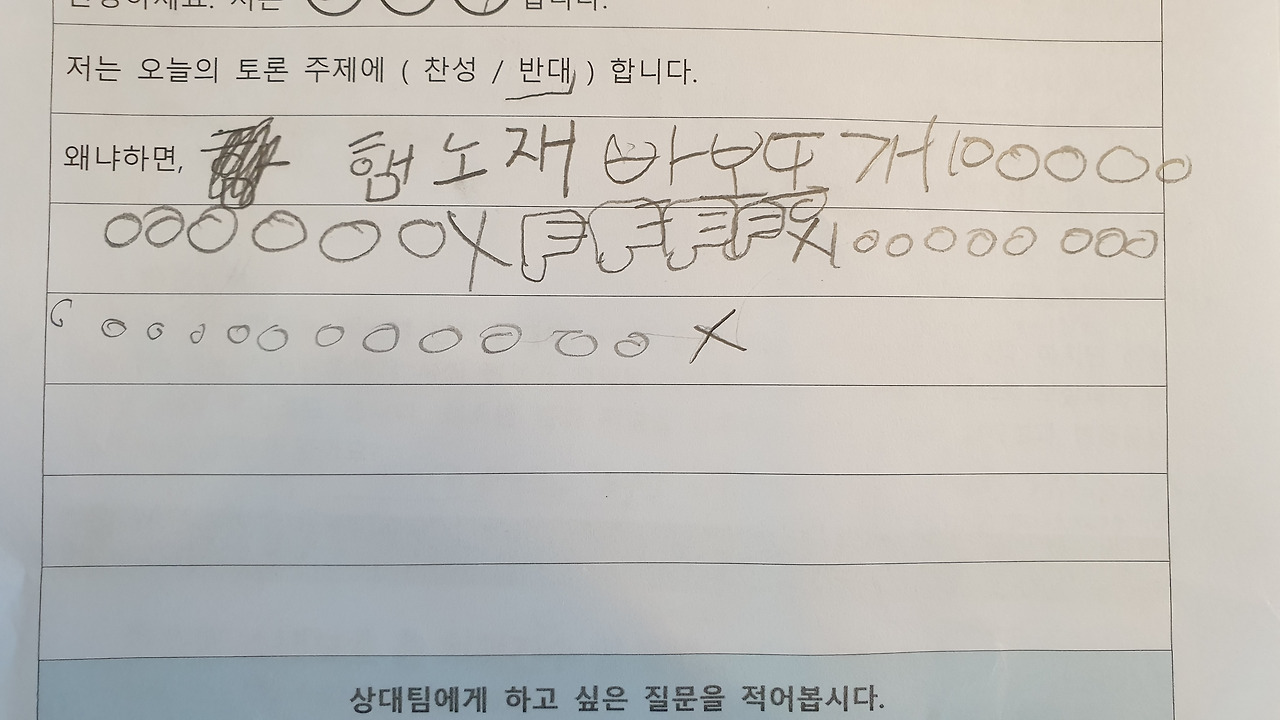 저는 오늘의 토론 주제에 ( 찬성 / 반대 ) 합니다.
왜냐하면, 햄 노재 바보또 개100000
000000X
X100000 000
000000000000 X
상대팀에게 하고 싶은 질문을 적어봅시다.